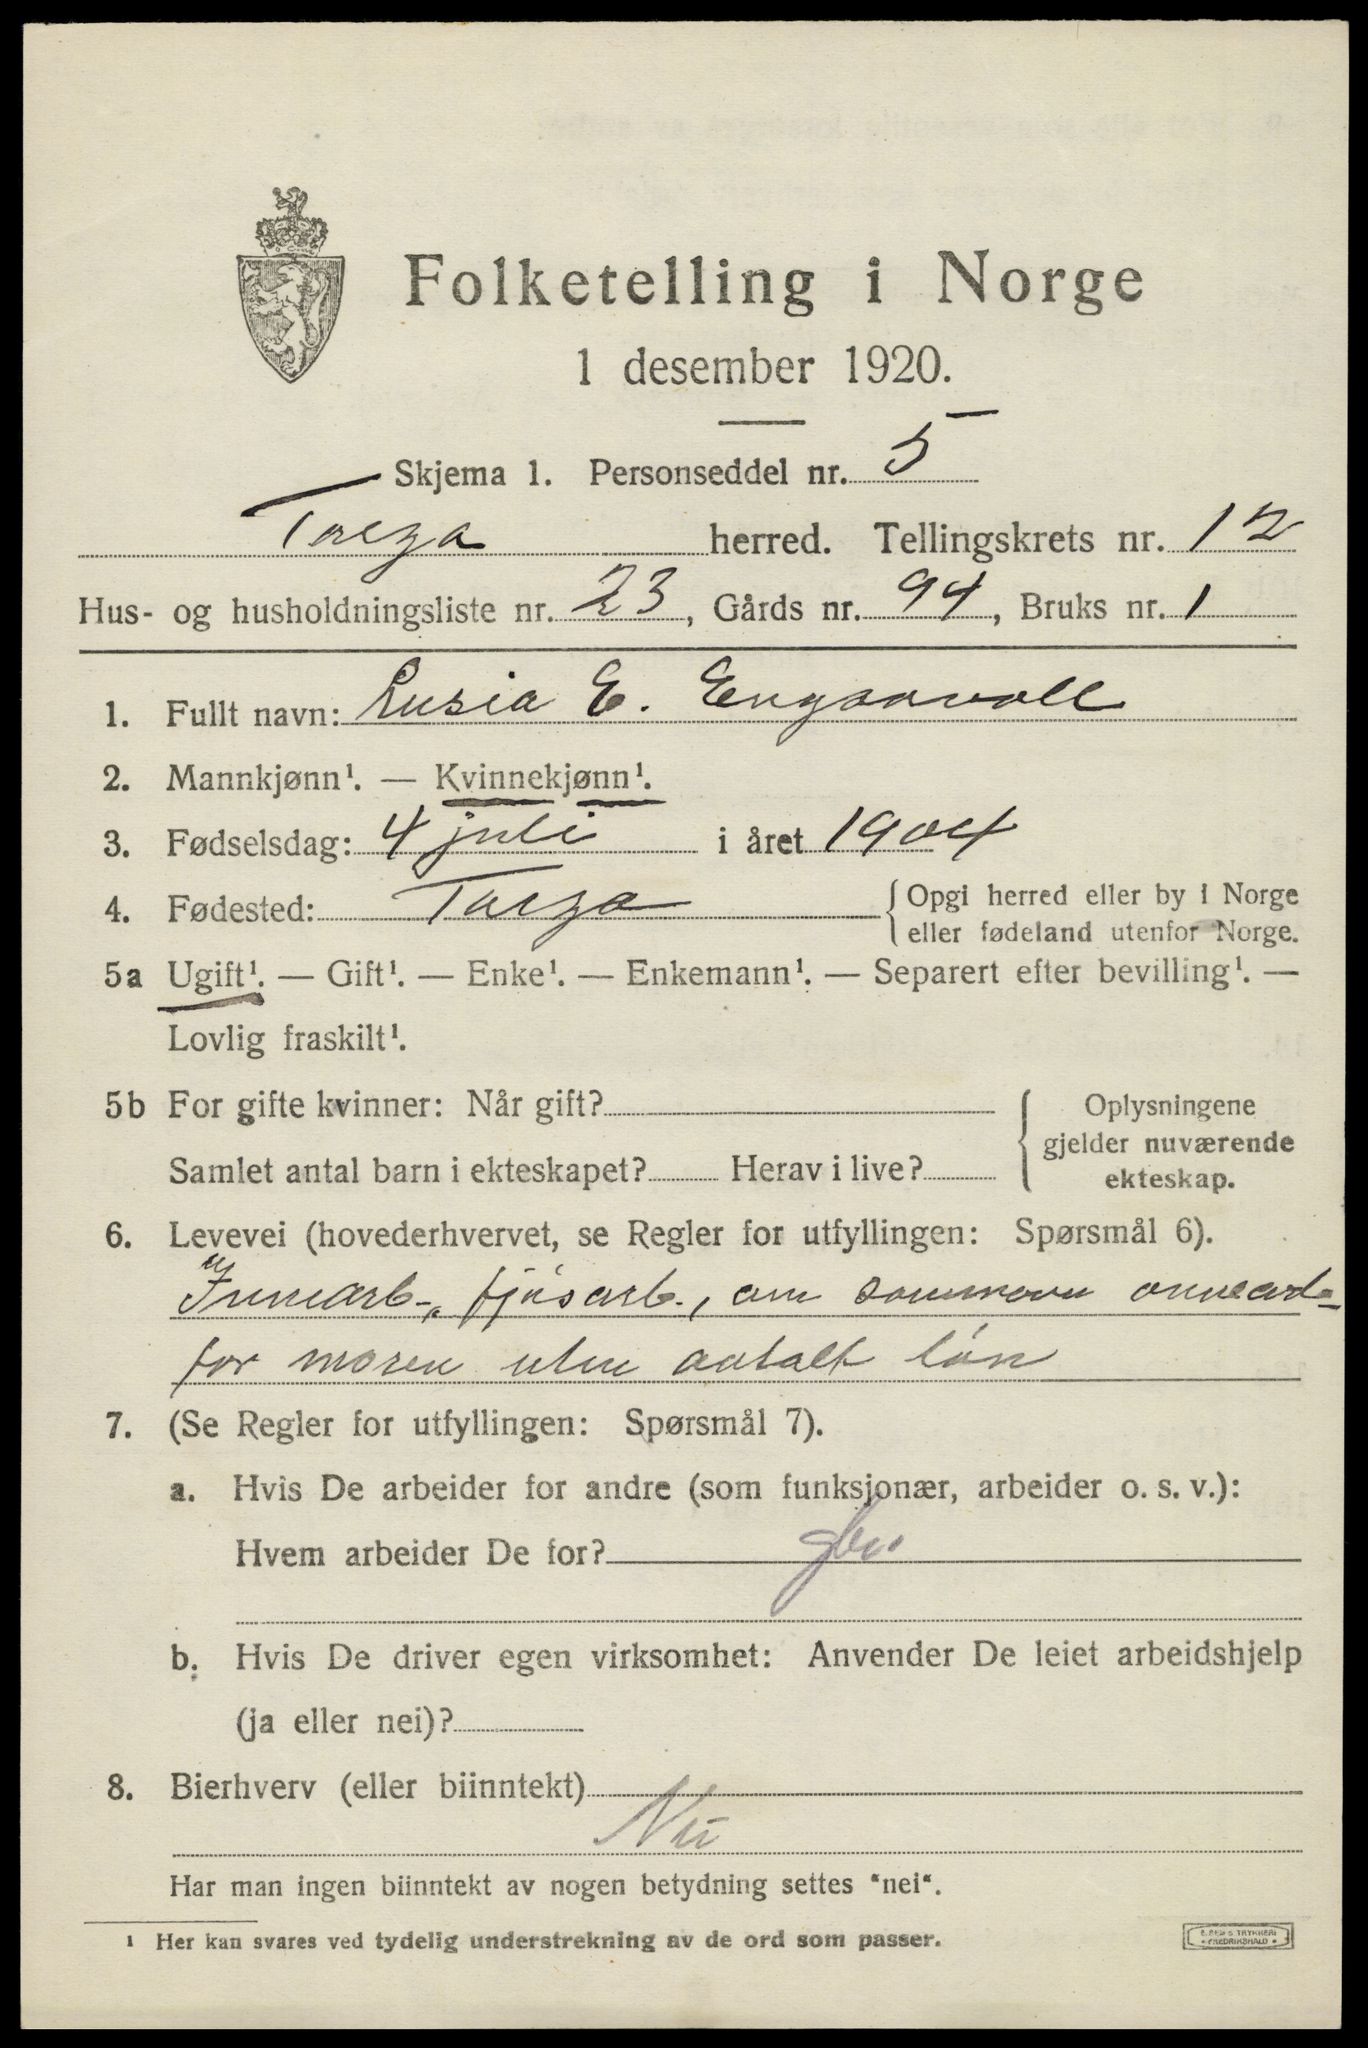 Folketelling i Norge
1 desember 1920.
Skjema 1. Personseddel nr. 5
Torza herred. Tellingskrets nr. 12
Hus- og husholdningsliste nr. 23, Gårds nr. 94, Bruks nr. 1
1. Fullt navn: Lusia E. Engsovoll
2. Mannkjønn¹. — Kvinnekjønn¹.
3. Fødselsdag: 4 juli i året 1904
4. Fødested: Torza {Opgi herred eller by i Norge
eller fødeland utenfor Norge.
5a Ugift¹. — Gift¹. — Enke¹. — Enkemann¹. — Separert efter bevilling¹. —
Lovlig fraskilt¹.
5b For gifte kvinner: Når gift? { Oplysningene
gjelder nuværende
Samlet antal barn i ekteskapet? Herav i live? ekteskap.
6. Levevei (hovederhvervet, se Regler for utfyllingen: Spørsmål 6).
Innearb., fjøsarb., om sommeren onnearb.
for moren uten avtalt løn
7. (Se Regler for utfyllingen: Spørsmål 7).
a. Hvis De arbeider for andre (som funksjonær, arbeider o. s. v.):
Hvem arbeider De for?
b. Hvis De driver egen virksomhet: Anvender De leiet arbeidshjelp
(ja eller nei)?
8. Bierhverv (eller biinntekt)
Nei
Har man ingen biinntekt av nogen betydning settes "nei".
¹ Her kan svares ved tydelig understrekning av de ord som passer.